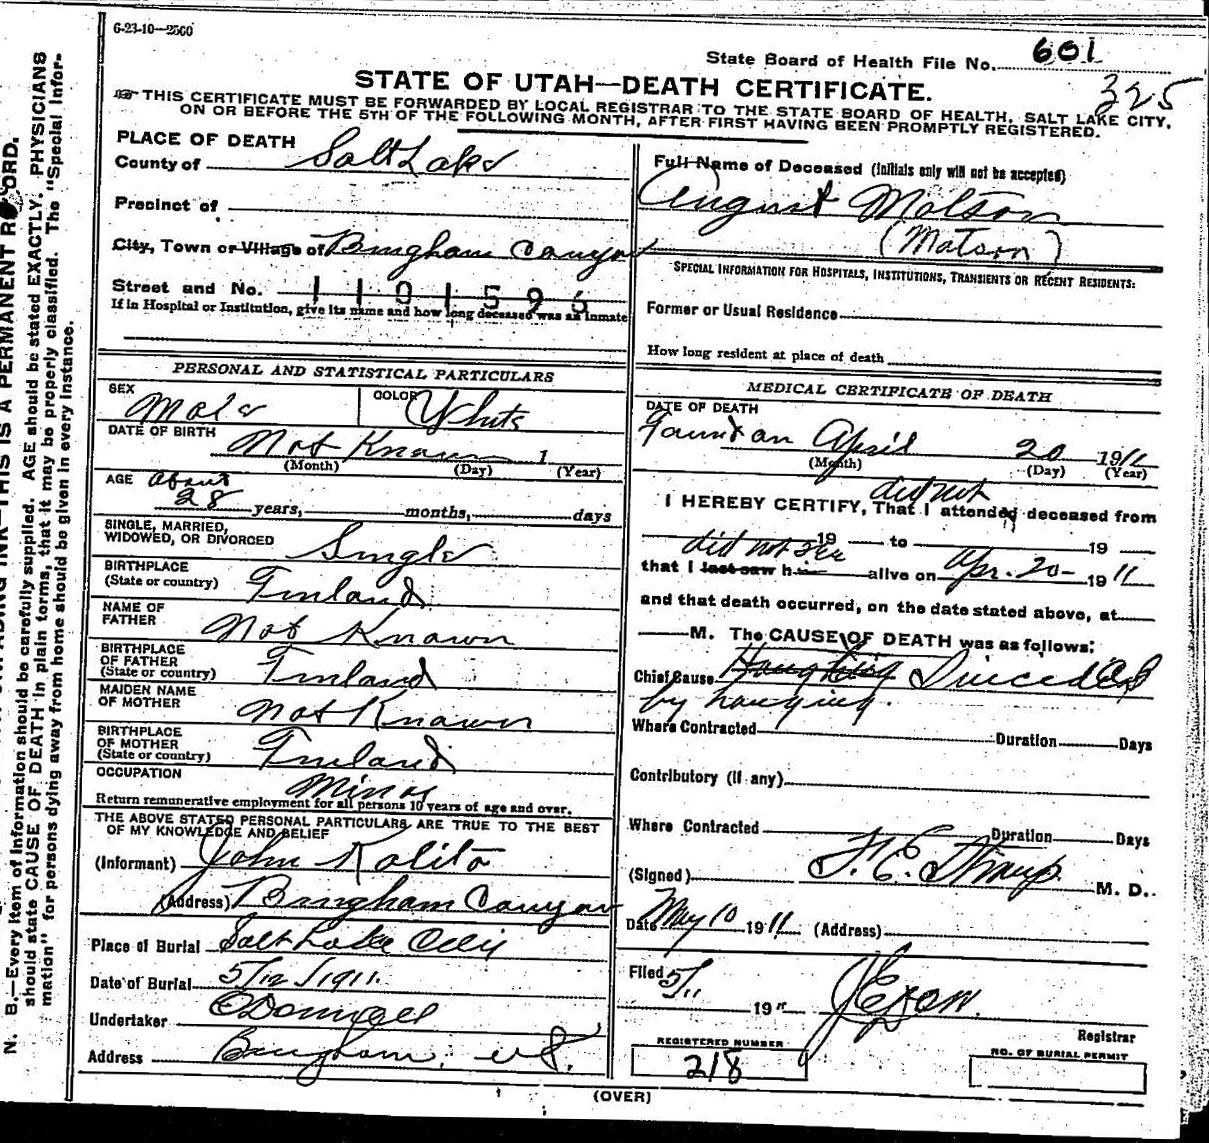 6-23-10—2500
State Board of Health File No. 601
325
STATE OF UTAH—DEATH CERTIFICATE.
THIS CERTIFICATE MUST BE FORWARDED BY LOCAL REGISTRAR TO THE STATE BOARD OF HEALTH, SALT LAKE CITY,
ON OR BEFORE THE 5TH OF THE FOLLOWING MONTH, AFTER FIRST HAVING BEEN PROMPTLY REGISTERED.
PLACE OF DEATH
County of Salt Lake
Precinct of
City, Town or Village of Bingham Canyon
Street and No. 1101596
If in Hospital or Institution, give its name and how long deceased was as inmate
PERSONAL AND STATISTICAL PARTICULARS
SEX Male
COLOR White
DATE OF BIRTH Not Known 1
(Month) (Day) (Year)
AGE about
28 years, months, days
SINGLE, MARRIED,
WIDOWED, OR DIVORCED Single
BIRTHPLACE
(State or country) Finland
NAME OF
FATHER Not Known
BIRTHPLACE
OF FATHER
(State or country) Finland
MAIDEN NAME
OF MOTHER Not Known
BIRTHPLACE
OF MOTHER
(State or country) Finland
OCCUPATION Miner
Return remunerative employment for all persons 10 years of age and over.
THE ABOVE STATED PERSONAL PARTICULARS ARE TRUE TO THE BEST
OF MY KNOWLEDGE AND BELIEF
(Informant) John Kalito
(Address) Bingham Canyon
Place of Burial Salt Lake City
Date of Burial 5/12/1911.
Undertaker O'Donnell
Address Bingham, ut.
Full Name of Deceased (Initials only will not be accepted)
August Motson
(Matson)
SPECIAL INFORMATION FOR HOSPITALS, INSTITUTIONS, TRANSIENTS OR RECENT RESIDENTS:
Former or Usual Residence
How long resident at place of death
MEDICAL CERTIFICATE OF DEATH
DATE OF DEATH
Found on April 20 1911
(Month) (Day) (Year)
did not
I HEREBY CERTIFY, That I attended deceased from
19 to 19
did not see
that I last saw him alive on Apr. 20- 1911
and that death occurred, on the date stated above, at
M. The CAUSE OF DEATH was as follows:
Chief Cause Suicided
by hanging.
Where Contracted Duration Days
Contributory (if any)
Where Contracted Duration Days
(Signed) M. D.
Date May 10 1911 (Address)
Filed 5/11
19
Registrar
REGISTERED NUMBER
218
NO. OF BURIAL PERMIT
(OVER)
N. B.—Every item of information should be carefully supplied. AGE should be stated EXACTLY. PHYSICIANS
should state CAUSE OF DEATH in plain terms, that it may be properly classified. The "Special Infor-
mation" for persons dying away from home should be given in every instance.
THIS IS A PERMANENT RECORD.